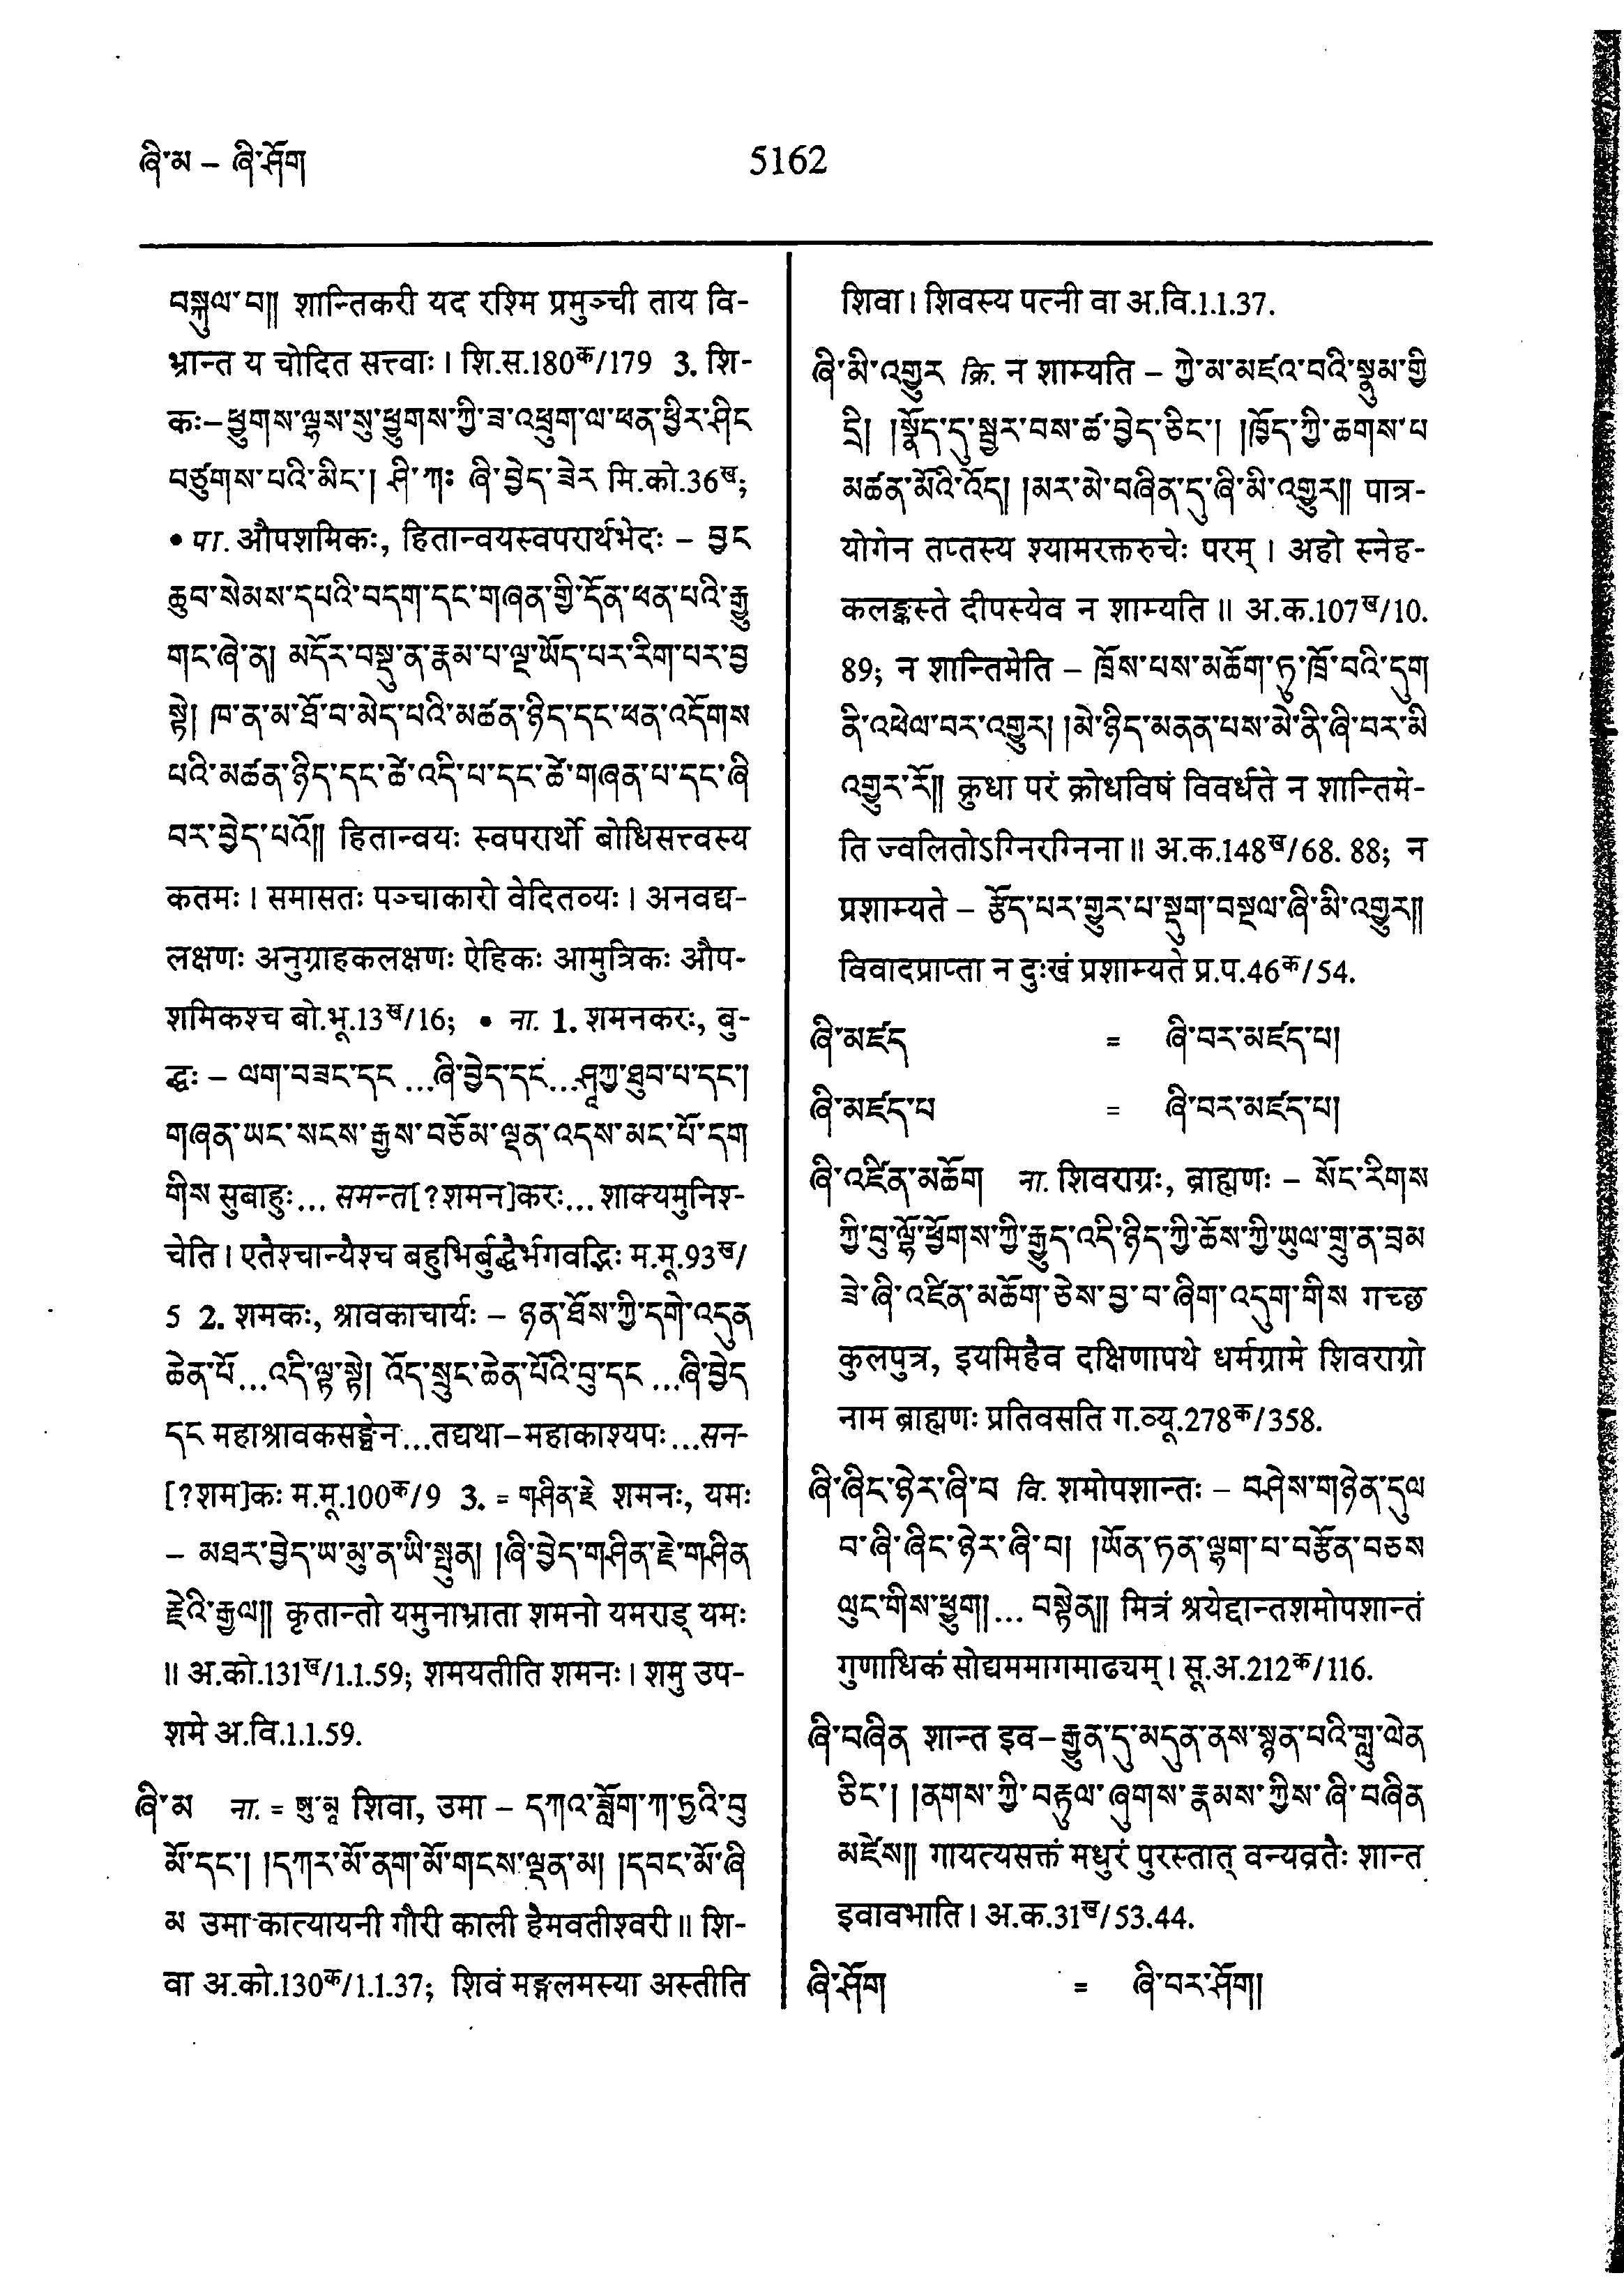 ཞི་མ – ཞི་ཤོག
5162
བསྐུལ་བ།། शान्तिकरी यद रश्मि प्रमुञ्ची ताय वि-
भ्रान्त य चोदित सत्त्वाः । शि.स.180क/179 3. शि-
कः– ཕྱུགས་ལྷས་སུ་ཕྱུགས་ཀྱི་ཟ་འཕྲུག་ལ་ཕན་ཕྱིར་ཤིང
བཙུགས་པའི་མིང་། ཤི་ཀཿ ཞི་བྱེད་ཟེར मि.को.36ख;
• पा. औपशमिकः, हितान्वयस्वपरार्थभेदः – བྱང
ཆུབ་སེམས་དཔའི་བདག་དང་གཞན་གྱི་དོན་ཕན་པའི་རྒྱུ
གང་ཞེ་ན། མདོར་བསྡུ་ན་རྣམ་པ་ལྔ་ཡོད་པར་རིག་པར་བྱ
སྟེ། ཁ་ན་མ་ཐོ་བ་མེད་པའི་མཚན་ཉིད་དང་ཕན་འདོགས
པའི་མཚན་ཉིད་དང་ཚེ་འདི་པ་དང་ཚེ་གཞན་པ་དང་ཞི
བར་བྱེད་པའོ།། हितान्वयः स्वपरार्थो बोधिसत्त्वस्य
कतमः । समासतः पञ्चाकारो वेदितव्यः । अनवद्य-
लक्षणः अनुग्राहकलक्षणः ऐहिकः आमुत्रिकः औप-
शमिकश्च बो.भू.13ख/16; • ना. 1. शमनकरः, बु-
द्धः – ལག་བཟང་དང ...ཞི་བྱེད་དང...ཤཱཀྱ་ཐུབ་པ་དང་།
གཞན་ཡང་སངས་རྒྱས་བཅོམ་ལྡན་འདས་མང་པོ་དག
གིས सुबाहुः... समन्त[?शमन]करः... शाक्यमुनिश्-
चेति । एतैश्चान्यैश्च बहुभिर्बुद्धैर्भगवद्भिः म.मू.93ख/
5 2. शमकः, श्रावकाचार्यः – ཉན་ཐོས་ཀྱི་དགེ་འདུན
ཆེན་པོ...འདི་ལྟ་སྟེ། འོད་སྲུང་ཆེན་པོའི་བུ་དང ...ཞི་བྱེད
དང महाश्रावकसङ्घेन...तद्यथा–महाकाश्यपः...सन-
[?शम]कः म.मू.100क/9 3. = གཤིན་རྗེ शमनः, यमः
– མཐར་བྱེད་ཡ་མུ་ན་ཡི་སྤུན། །ཞི་བྱེད་གཤིན་རྗེ་གཤིན
རྗེའི་རྒྱལ།། कृतान्तो यमुनाभ्राता शमनो यमराड् यमः
॥ अ.को.131ख/1.1.59; शमयतीति शमनः । शमु उप-
शमे अ.वि.1.1.59.
ཞི་མ ना. = ཨུ་མཱ शिवा, उमा – དཀའ་ཟློག་ཀ་ཏྱའི་བུ
མོ་དང་། །དཀར་མོ་ནག་མོ་གངས་ལྡན་མ། །དབང་མོ་ཞི
མ उमा कात्यायनी गौरी काली हैमवतीश्वरी ॥ शि-
वा अ.को.130क/1.1.37; शिवं मङ्गलमस्या अस्तीति
शिवा । शिवस्य पत्नी वा अ.वि.1.1.37.
ཞི་མི་འགྱུར क्रि. न शाम्यति – ཀྱེ་མ་མཛའ་བའི་སྣུམ་གྱི
དྲི། །སྣོད་དུ་སྦྱར་བས་ཚ་བྱེད་ཅིང་། །ཁྱོད་ཀྱི་ཆགས་པ
མཚན་མོའི་འོད། །མར་མེ་བཞིན་དུ་ཞི་མི་འགྱུར།། पात्र-
योगेन तप्तस्य श्यामरक्तरुचेः परम् । अहो स्नेह-
कलङ्कस्ते दीपस्येव न शाम्यति ॥ अ.क.107ख/10.
89; न शान्तिमेति – ཁྲོས་པས་མཆོག་ཏུ་ཁྲོ་བའི་དུག
ནི་འཕེལ་བར་འགྱུར། །མེ་ཉིད་མནན་པས་མེ་ནི་ཞི་བར་མི
འགྱུར་རོ།། क्रुधा परं क्रोधविषं विवर्धते न शान्तिमे-
ति ज्वलितोऽग्निरग्निना ॥ अ.क.148ख/68. 88; न
प्रशाम्यते – རྩོད་པར་གྱུར་པ་སྡུག་བསྔལ་ཞི་མི་འགྱུར།།
विवादप्राप्ता न दुःखं प्रशाम्यते प्र.प.46क/54.
ཞི་མཛད = ཞི་བར་མཛད་པ།
ཞི་མཛད་པ = ཞི་བར་མཛད་པ།
ཞི་འཛིན་མཆོག ना. शिवराग्रः, ब्राह्मणः – སོང་རིགས
ཀྱི་བུ་ལྷོ་ཕྱོགས་ཀྱི་རྒྱུད་འདི་ཉིད་ཀྱི་ཆོས་ཀྱི་ཡུལ་གྲུ་ན་བྲམ
ཟེ་ཞི་འཛིན་མཆོག་ཅེས་བྱ་བ་ཞིག་འདུག་གིས गच्छ
कुलपुत्र, इयमिहैव दक्षिणापथे धर्मग्रामे शिवराग्रो
नाम ब्राह्मणः प्रतिवसति ग.व्यू.278क/358.
ཞི་ཞིང་ཉེར་ཞི་བ वि. शमोपशान्तः – བཤེས་གཉེན་དུལ
བ་ཞི་ཞིང་ཉེར་ཞི་བ། །ཡོན་ཏན་ལྷག་པ་བརྩོན་བཅས
ལུང་གིས་ཕྱུག།... བསྟེན།། मित्रं श्रयेद्दान्तशमोपशान्तं
गुणाधिकं सोद्यममागमाढ्यम् । सू.अ.212क/116.
ཞི་བཞིན शान्त इव–རྒྱུན་དུ་མདུན་ནས་སྙན་པའི་གླུ་ལེན
ཅིང་། །ནགས་ཀྱི་བརྟུལ་ཞུགས་རྣམས་ཀྱིས་ཞི་བཞིན
མཛེས།། गायत्यसक्तं मधुरं पुरस्तात् वन्यव्रतैः शान्त
इवावभाति । अ.क.31ख/53.44.
ཞི་ཤོག = ཞི་བར་ཤོག།